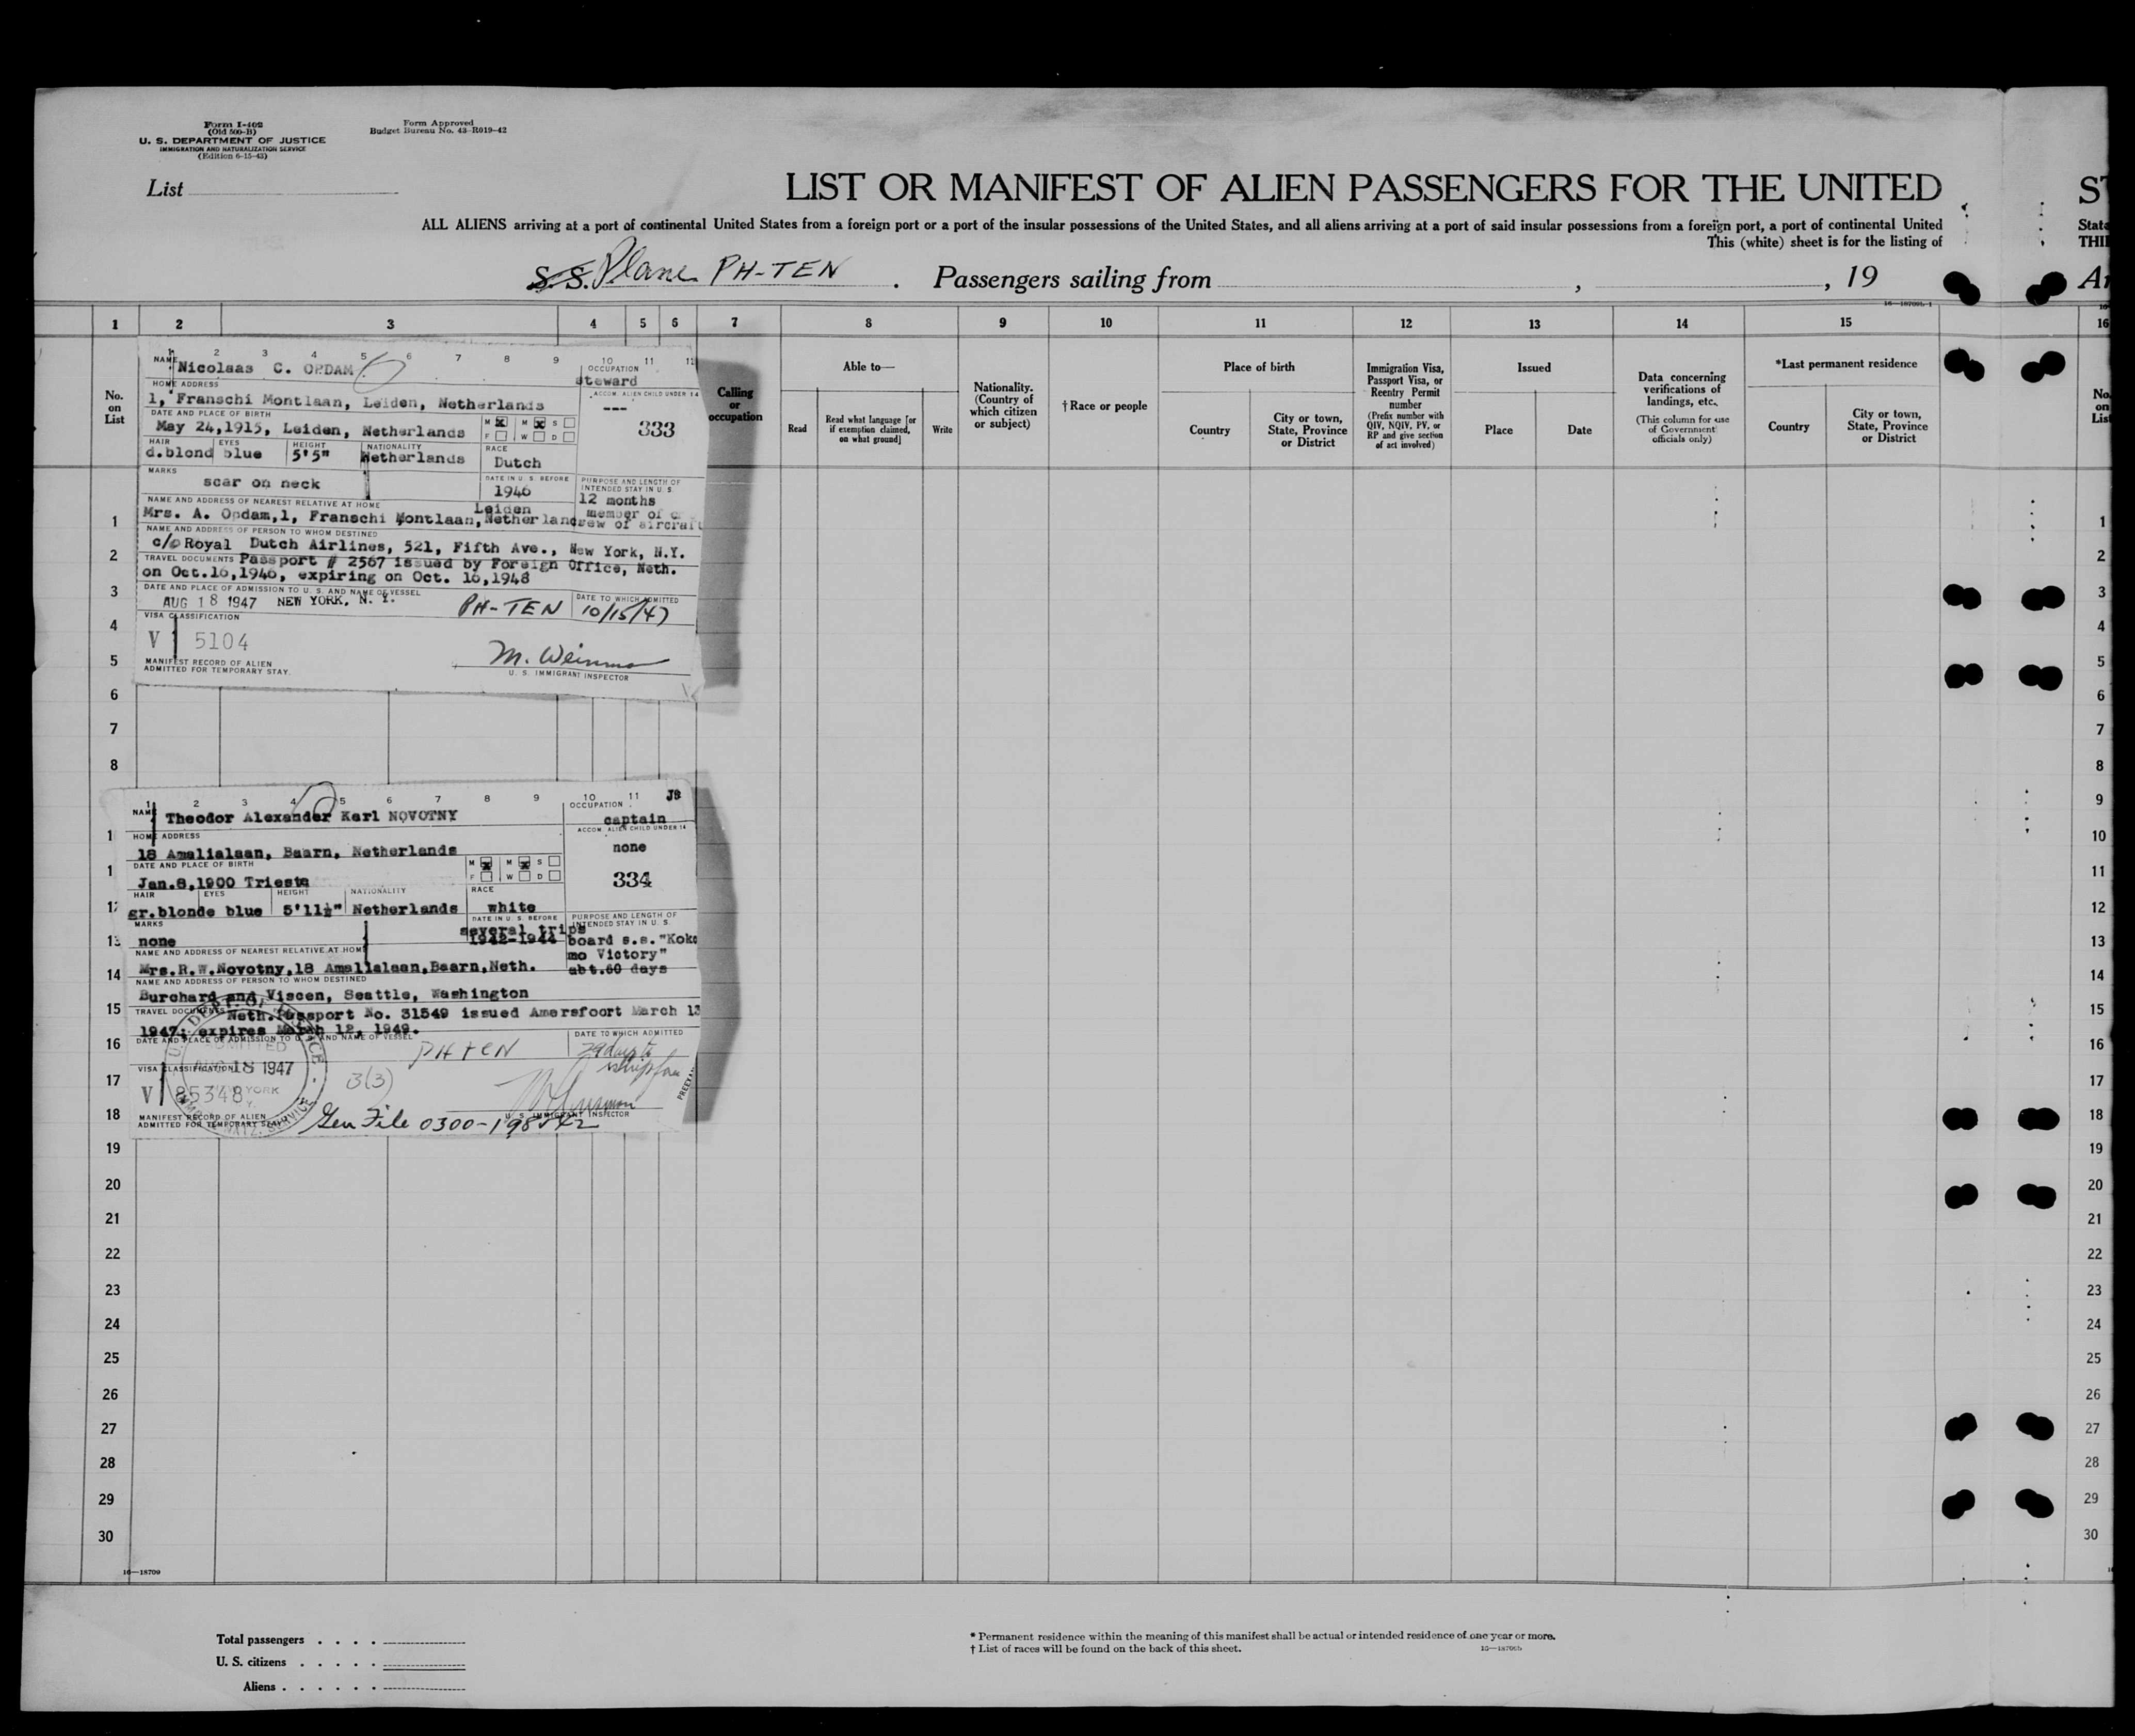 Form I-402
(Old 500-B)
U. S. DEPARTMENT OF JUSTICE
IMMIGRATION AND NATURALIZATION SERVICE
(Edition 6-15-43)
Form Approved
Budget Bureau No. 43-R019-42
List
LIST OR MANIFEST OF ALIEN PASSENGERS FOR THE UNITED
ALL ALIENS arriving at a port of continental United States from a foreign port or a port of the insular possessions of the United States, and all aliens arriving at a port of said insular possessions from a foreign port, a port of continental United
This (white) sheet is for the listing of
S.S. Plane PH-TEN . Passengers sailing from , , 19
16—18709b-1
1 2 3 4 5 6 7 8 9 10 11 12 13 14 15 16
No. on List
Calling or occupation
Able to—
Read
Read what language [or if exemption claimed, on what ground]
Write
Nationality. (Country of which citizen or subject)
†Race or people
Place of birth
Country
City or town, State, Province or District
Immigration Visa, Passport Visa, or Reentry Permit number
(Prefix number with QIV, NQIV, PV, or RP and give section of act involved)
Issued
Place
Date
Data concerning verifications of landings, etc.
(This column for use of Government officials only)
*Last permanent residence
Country
City or town, State, Province or District
1 2 3 4 5 6 7 8 9 10 11
NAME Nicolaas C. OPDAM
OCCUPATION
steward
HOME ADDRESS
1, Franschi Montlaan, Leiden, Netherlands
ACCOM. ALIEN CHILD UNDER 14
---
DATE AND PLACE OF BIRTH
May 24,1915, Leiden, Netherlands
M M S
F W D
333
HAIR EYES HEIGHT NATIONALITY RACE
d.blond blue 5'5" Netherlands Dutch
MARKS
scar on neck
DATE IN U. S. BEFORE
1946
PURPOSE AND LENGTH OF INTENDED STAY IN U. S.
12 months
member of
crew of aircraft
NAME AND ADDRESS OF NEAREST RELATIVE AT HOME
Leiden
Mrs. A. Opdam,1, Franschi Montlaan,Netherlands
NAME AND ADDRESS OF PERSON TO WHOM DESTINED
c/o Royal Dutch Airlines, 521, Fifth Ave., New York, N.Y.
TRAVEL DOCUMENTS Passport # 2567 issued by Foreign Office, Neth.
on Oct.16,1946, expiring on Oct. 16,1948
DATE AND PLACE OF ADMISSION TO U. S. AND NAME OF VESSEL
DATE TO WHICH ADMITTED
AUG 18 1947 NEW YORK, N. Y. PH-TEN 10/15/47
VISA CLASSIFICATION
V 5104
M. Weinman
MANIFEST RECORD OF ALIEN
ADMITTED FOR TEMPORARY STAY.
U. S. IMMIGRANT INSPECTOR
1 2 3 4 5 6 7 8 9 10 11 J8
NAME Theodor Alexander Karl NOVOTNY
OCCUPATION
captain
HOME ADDRESS
18 Amalialaan, Baarn, Netherlands
ACCOM. ALIEN CHILD UNDER 14
none
DATE AND PLACE OF BIRTH
Jan.8,1900 Trieste
M M S
F W D
334
HAIR EYES HEIGHT NATIONALITY RACE
gr.blonde blue 5'11½" Netherlands white
MARKS
none
DATE IN U. S. BEFORE
several trips
1942-1944
PURPOSE AND LENGTH OF INTENDED STAY IN U. S.
board s.s. "Koko
mo Victory"
abt.60 days
NAME AND ADDRESS OF NEAREST RELATIVE AT HOME
Mrs.R.W.Novotny,18 Amalialaan,Baarn,Neth.
NAME AND ADDRESS OF PERSON TO WHOM DESTINED
Burchard and Viscen, Seattle, Washington
TRAVEL DOCUMENTS Neth.Passport No. 31549 issued Amersfoort March 13
1947; expires March 12, 1949.
DATE AND PLACE OF ADMISSION TO U. S. AND NAME OF VESSEL
DATE TO WHICH ADMITTED
PH TEN 29 days
ADMITTED
AUG 18 1947
NEW YORK
VISA CLASSIFICATION
V 85348
3(3)
U. S. IMMIGRANT INSPECTOR
MANIFEST RECORD OF ALIEN
ADMITTED FOR TEMPORARY STAY
Gen File 0300-198542
1
2
3
4
5
6
7
8
9
10
11
12
13
14
15
16
17
18
19
20
21
22
23
24
25
26
27
28
29
30
16—18709
Total passengers . . . .
U. S. citizens . . . . .
Aliens . . . . . .
* Permanent residence within the meaning of this manifest shall be actual or intended residence of one year or more.
† List of races will be found on the back of this sheet.
16—18709b